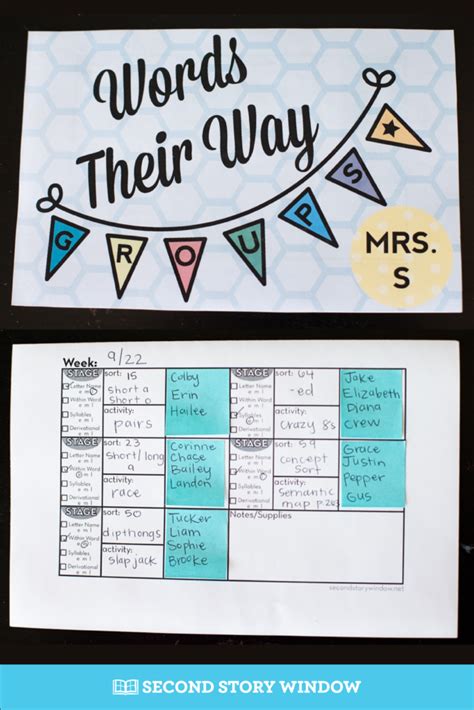 Words
Their Way
GROUPS
MRS.
S
Week: 9/22
STAGE
Letter Name
e m l
Within Word
e m l
Syllables
e m l
Derivational
e m l
sort: 15
short a
short o
activity:
pairs
Colby
Erin
Hailee
STAGE
Letter Name
e m l
Within Word
e m l
Syllables
e m l
Derivational
e m l
sort: 64
-ed
activity:
crazy 8s
Jake
Elizabeth
Diana
Crew
STAGE
Letter Name
e m l
Within Word
e m l
Syllables
e m l
Derivational
e m l
sort: 23
short/long
a
activity:
race
Corinne
Chase
Bailey
Landon
STAGE
Letter Name
e m l
Within Word
e m l
Syllables
e m l
Derivational
e m l
sort: 59
concept
sort
activity:
semantic
map
Grace
Justin
Pepper
Gus
STAGE
Letter Name
e m l
Within Word
e m l
Syllables
e m l
Derivational
e m l
sort: 50
dipthongs
activity:
slapjack
Tucker
Liam
Sophie
Brooke
Notes/Supplies
secondstorywindow.net
SECOND STORY WINDOW